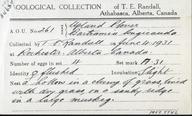 OOLOGICAL COLLECTION of T. E. RANDALL,
Athabasca, Alberta, Canada
A.O.U. No. 261 Upland Plover
Bartramia longicauda
Collected by T. E. Randall on June 4, 1931
at Rochester, Alberta, Canada
Number of eggs in set 4 Set Mark 17.31
Identity flushed Incubation Slight
Nest a hollow in a clump of grass lined
with dry grass on a sandy ridge
on a large muskeg.